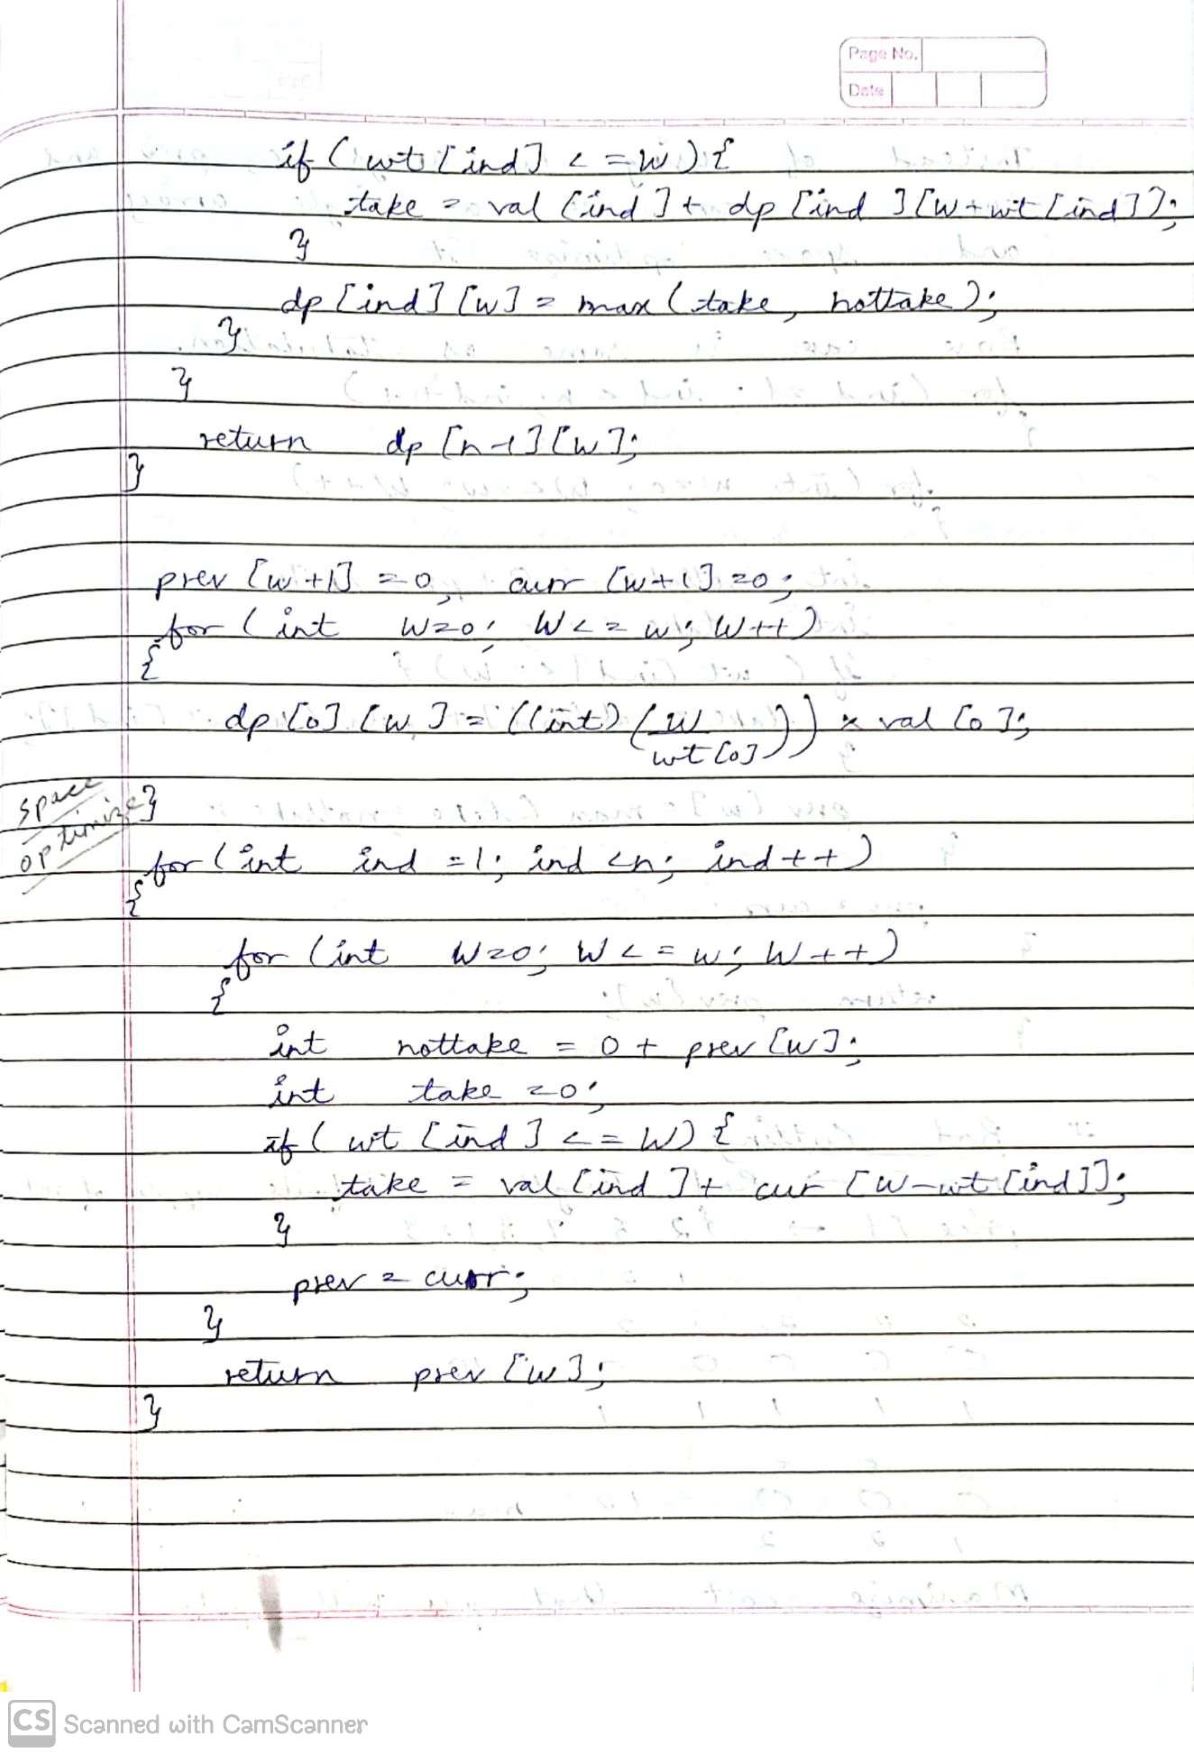 Page No.
Date
if (wt [ind] <= W) {
take = val [ind] + dp [ind] [W + wt [ind]];
}
dp [ind] [W] = max (take, nottake);
}
}
return dp [n-1] [W];
}
prev [w+1] = 0, curr [w+1] = 0;
for (int W=0; W <= w; W++)
{
dp [0] [W] = ((int) (W
wt [0])) x val [0];
space
optimize
}
for (int ind = 1; ind < n; ind++)
{
for (int W=0; W <= w; W++)
{
int nottake = 0 + prev [W];
int take = 0;
if (wt [ind] <= W) {
take = val [ind] + cur [W-wt [ind]];
}
prev = curr;
}
return prev [W];
}
CS Scanned with CamScanner